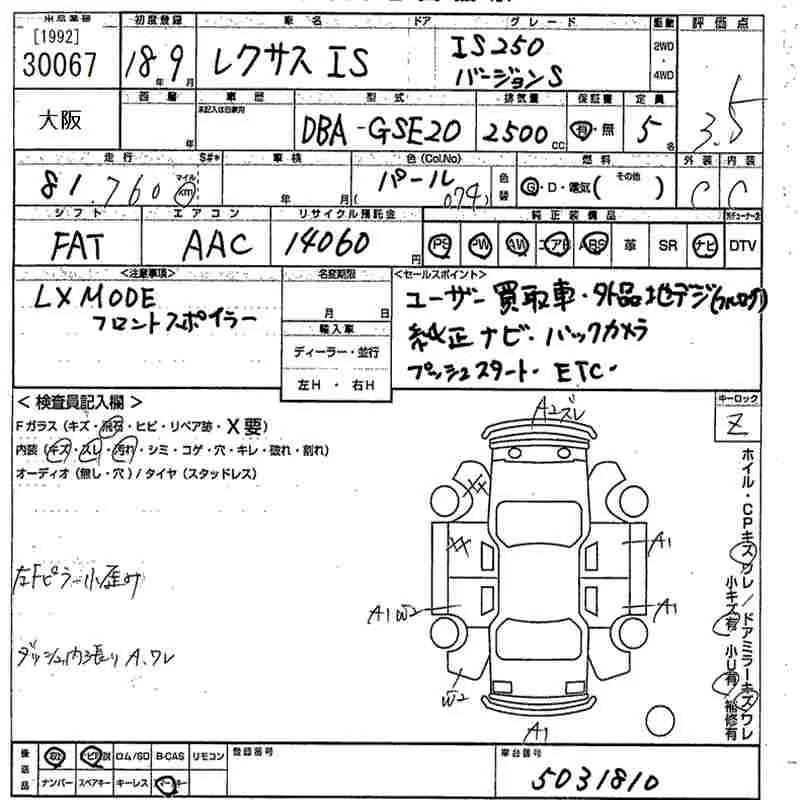 初度登録 車名 ドア グレード 駆動 評価点
[1992]
30067 18年9月 レクサス IS IS250 バージョンS 2WD・4WD 3.5
西暦 車歴 型式 排気量 保証書 定員
未記入は自家用
大阪 年 DBA-GSE20 2500cc 有・無 5名
走行 S#* 車検 色(Col.No) 燃料 外装 内装
81,760 マイル km 年 月 パール (074) 色替 G・D・電気( その他 ) C C
シフト エアコン リサイクル預託金 純正装備品
FAT AAC 14060円 PS PW AW エアB ABS 革 SR ナビ DTV
<注意事項> 名変期限 <セールスポイント>
LX MODE
フロントスポイラー
月 日
輸入車
ディーラー・並行
左H・右H
ユーザー買取車・外品地デジ(フルセグ)
純正ナビ・バックカメラ
プッシュスタート・ETC・
<検査員記入欄> キーロック
Z
Fガラス(キズ・飛石・ヒビ・リペア跡・X要)
内装(キズ・スレ・汚れ・シミ・コゲ・穴・キレ・破れ・割れ)
オーディオ(無し・穴)/タイヤ(スタッドレス)
左Fピラー小歪み
ダッシュ内張りA、ワレ
A2ズレ
XX
XX
A1
A1W2
A1
W2
A1
ホイル・CPキズワレ/ドアミラーキズワレ
小キズ有 小U有 補修有
後送品 取説 ナビ取説 ロム/SD B-CAS リモコン 登録番号 車台番号
ナンバー スペアキー キーレス スマートキー 5031810